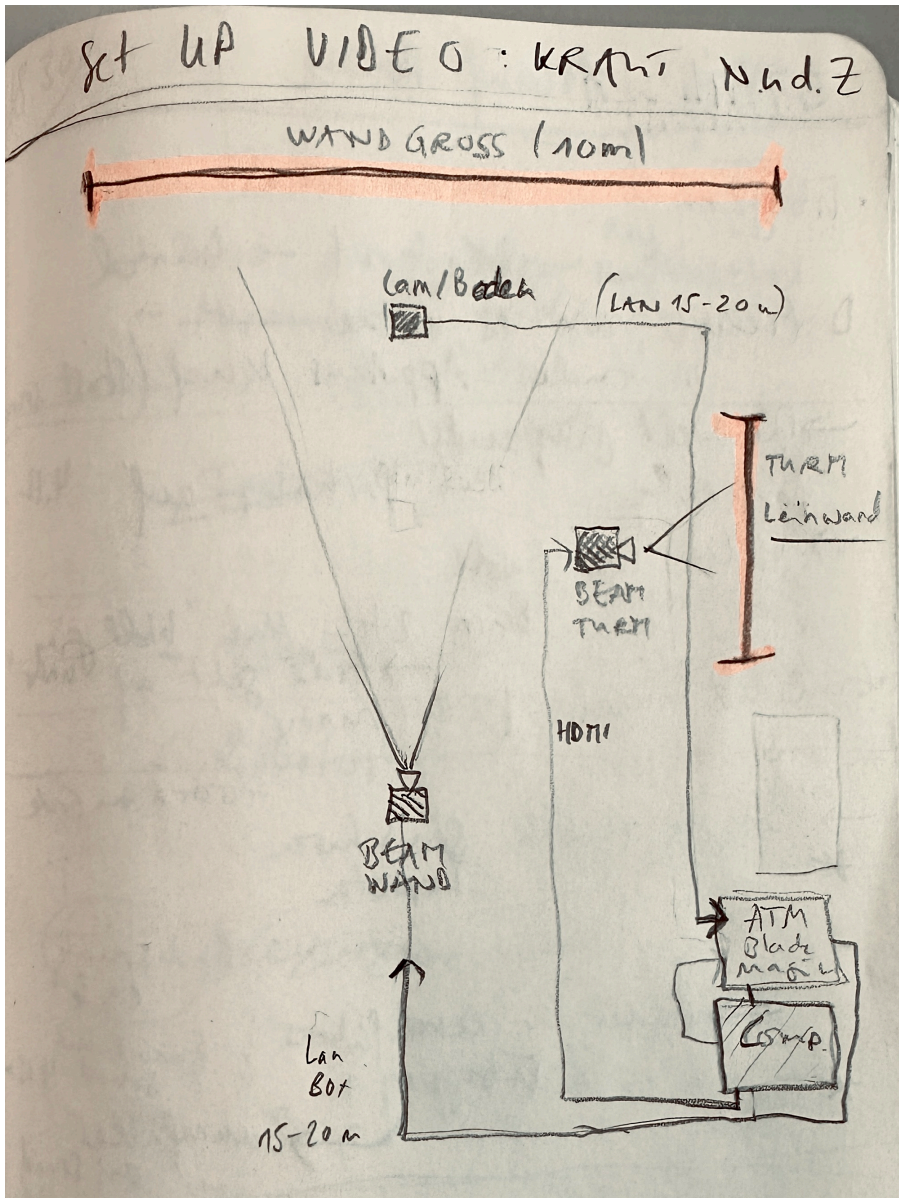 Set UP VIDEO: KRAFT N.u.d.Z
WAND GROSS (10m)
Cam/Boden
(LAN 15-20m)
TURM
Leinwand
BEAM
TURM
HDMI
BEAM
WAND
ATM
Black
magic
Comp.
Lan
Box
15-20m